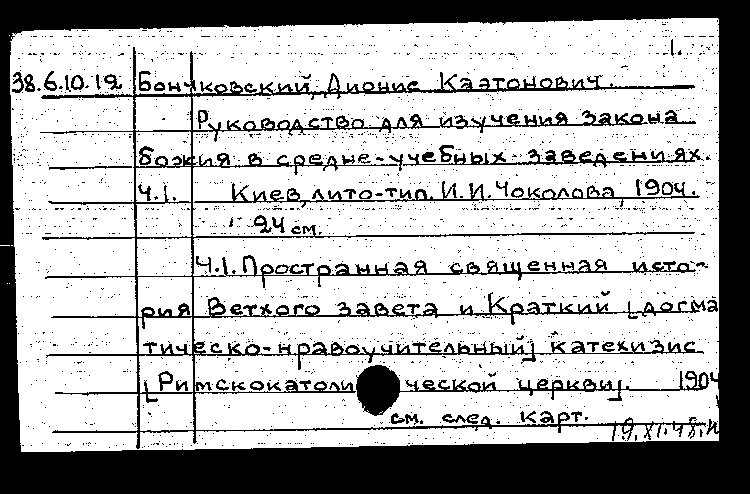 1.
38.6.10.12 Бончковский, Дионис Каэтонович.
Руководство для изучения закона
божия в средне-учебных заведениях.
Ч.1. Киев, лито-тип. И.И. Чоколова, 1904.
24 см.
Ч.1. Пространная священная исто-
рия Ветхого завета и Краткий [догма
тическо-нравоучительный] катехизис
[Римскокатолической церкви]. 1904
см. след. карт.
19.XI.48.